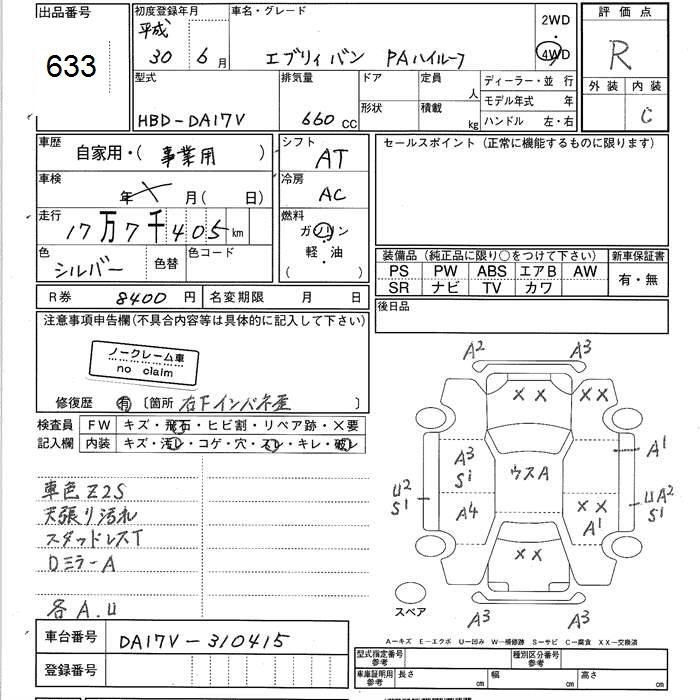 出品番号
633
初度登録年月
平成
30 6月
車名・グレード
エブリィバン PAハイルーフ
2WD
・
4WD
評価点
R
外装 内装
C
型式
HBD-DA17V
排気量
660 CC
ドア
形状
定員
人
積載
kg
ディーラー・並行
モデル年式 年
ハンドル 左・右
車歴
自家用・( 事業用 )
車検
年 月( 日)
走行
17万7千405km
色
シルバー
色替
色コード
シフト
AT
冷房
AC
燃料
ガソリン
・
軽・油
( )
セールスポイント(正常に機能するものに限ります)
装備品(純正品に限り○をつけて下さい)
PS PW ABS エアB AW
SR ナビ TV カワ
新車保証書
有・無
R券 8400円
名変期限 月 日
後日品
注意事項申告欄(不具合内容等は具体的に記入して下さい)
ノークレーム車
no claim
修復歴 有 〔箇所 右下インパネ歪 〕
検査員
記入欄
FW キズ・飛石・ヒビ割・リペア跡・×要
内装 キズ・汚レ・コゲ・穴・スレ・キレ・破レ
車色Z2S
天張り汚れ
スタッドレスT
DミラーA
各A.U
車台番号 DA17V-310415
登録番号
A2 A3
×× ××
A1
A3
S1
ウスA
U2
S1
A4
××
A1
UA2
S1
××
スペア
A3 A3
A…キズ E…エクボ U…凹み W…補修跡 S…サビ C…腐食 XX…交換済
型式指定番号
参考
種別区分番号
参考
車庫証明用
参考
長さ cm 幅 cm 高さ cm